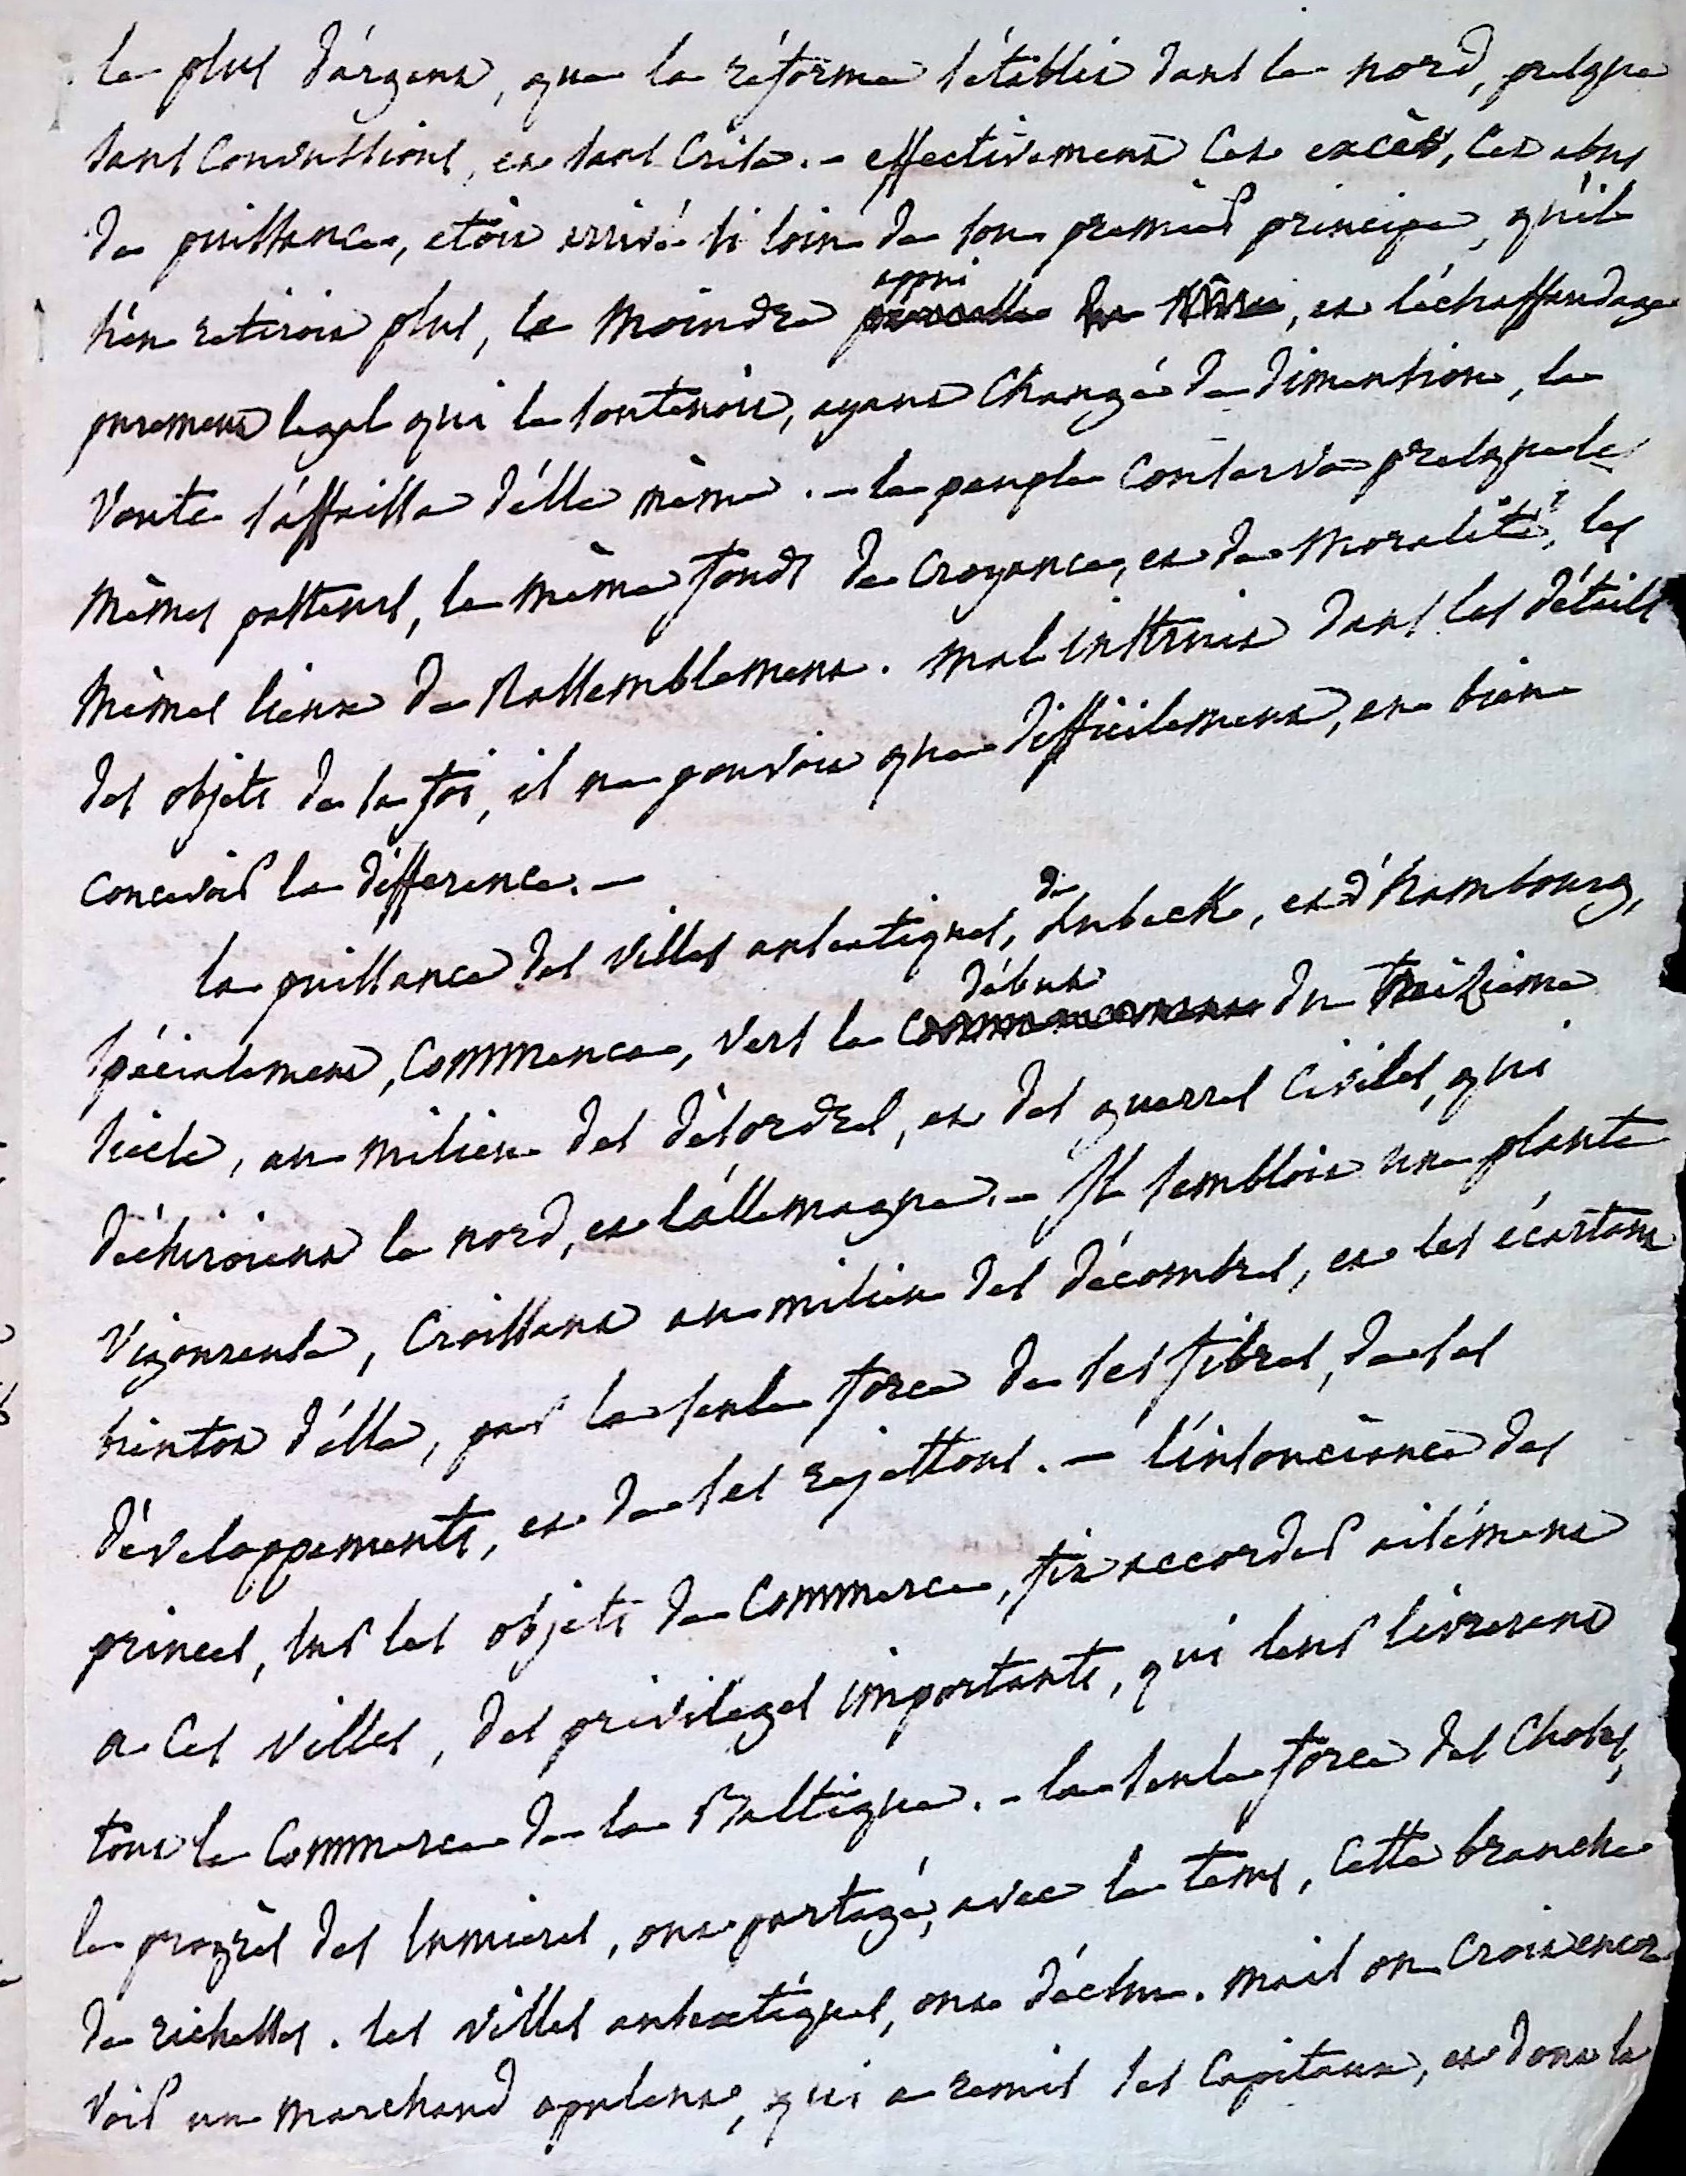 le plus d'argent, que la réforme s'établit dans le nord, presque
sans convulsions, et sans crise. - effectivement cet excès, cet abus
de puissance, etoit arrivé si loin de son premier principe, qu'il
n'en retiroit plus, le moindre appui, et l'échaffaudage
purement legal qui le soutenoit, ayant changé de dimention, la
voute s'affaissa d'elle même. - le peuple conserva presque les
mêmes pasteurs, le même fonds de croyance, et de moralité, les
mêmes lieux de Rassemblement. mal instruit dans les détails
des objets de sa foi, il ne pouvoit que difficilement, en bien
concevoir la différence. -
la puissance des villes anséatiques, de Lubeck, et d'hambourg,
spécialement, commença, vers le début du treizieme
siècle, au milieu des désordres, et des guerres civiles, qui
déchiroient le nord, et l'allemagne. - Il sembloit une plante
vigoureuse, croissant au milieu des décombres, et les écartant
bientot d'elle, par la seule force de ses fibres, de ses
développements, et de ses rejettons. - l'insouciance des
princes, sur les objets de commerce, fit accorder aisément
a ces villes, des privileges importants, qui leur livrerent
tout le commerce de la Baltique. - la seule force des choses,
le progrès des lumieres, ont partagé, avec le tems, cette branche
de richesses. les villes anséatiques, ont déchu. mais on croit encor
voir un marchand opulent, qui a remis ses capitaux, et dont la